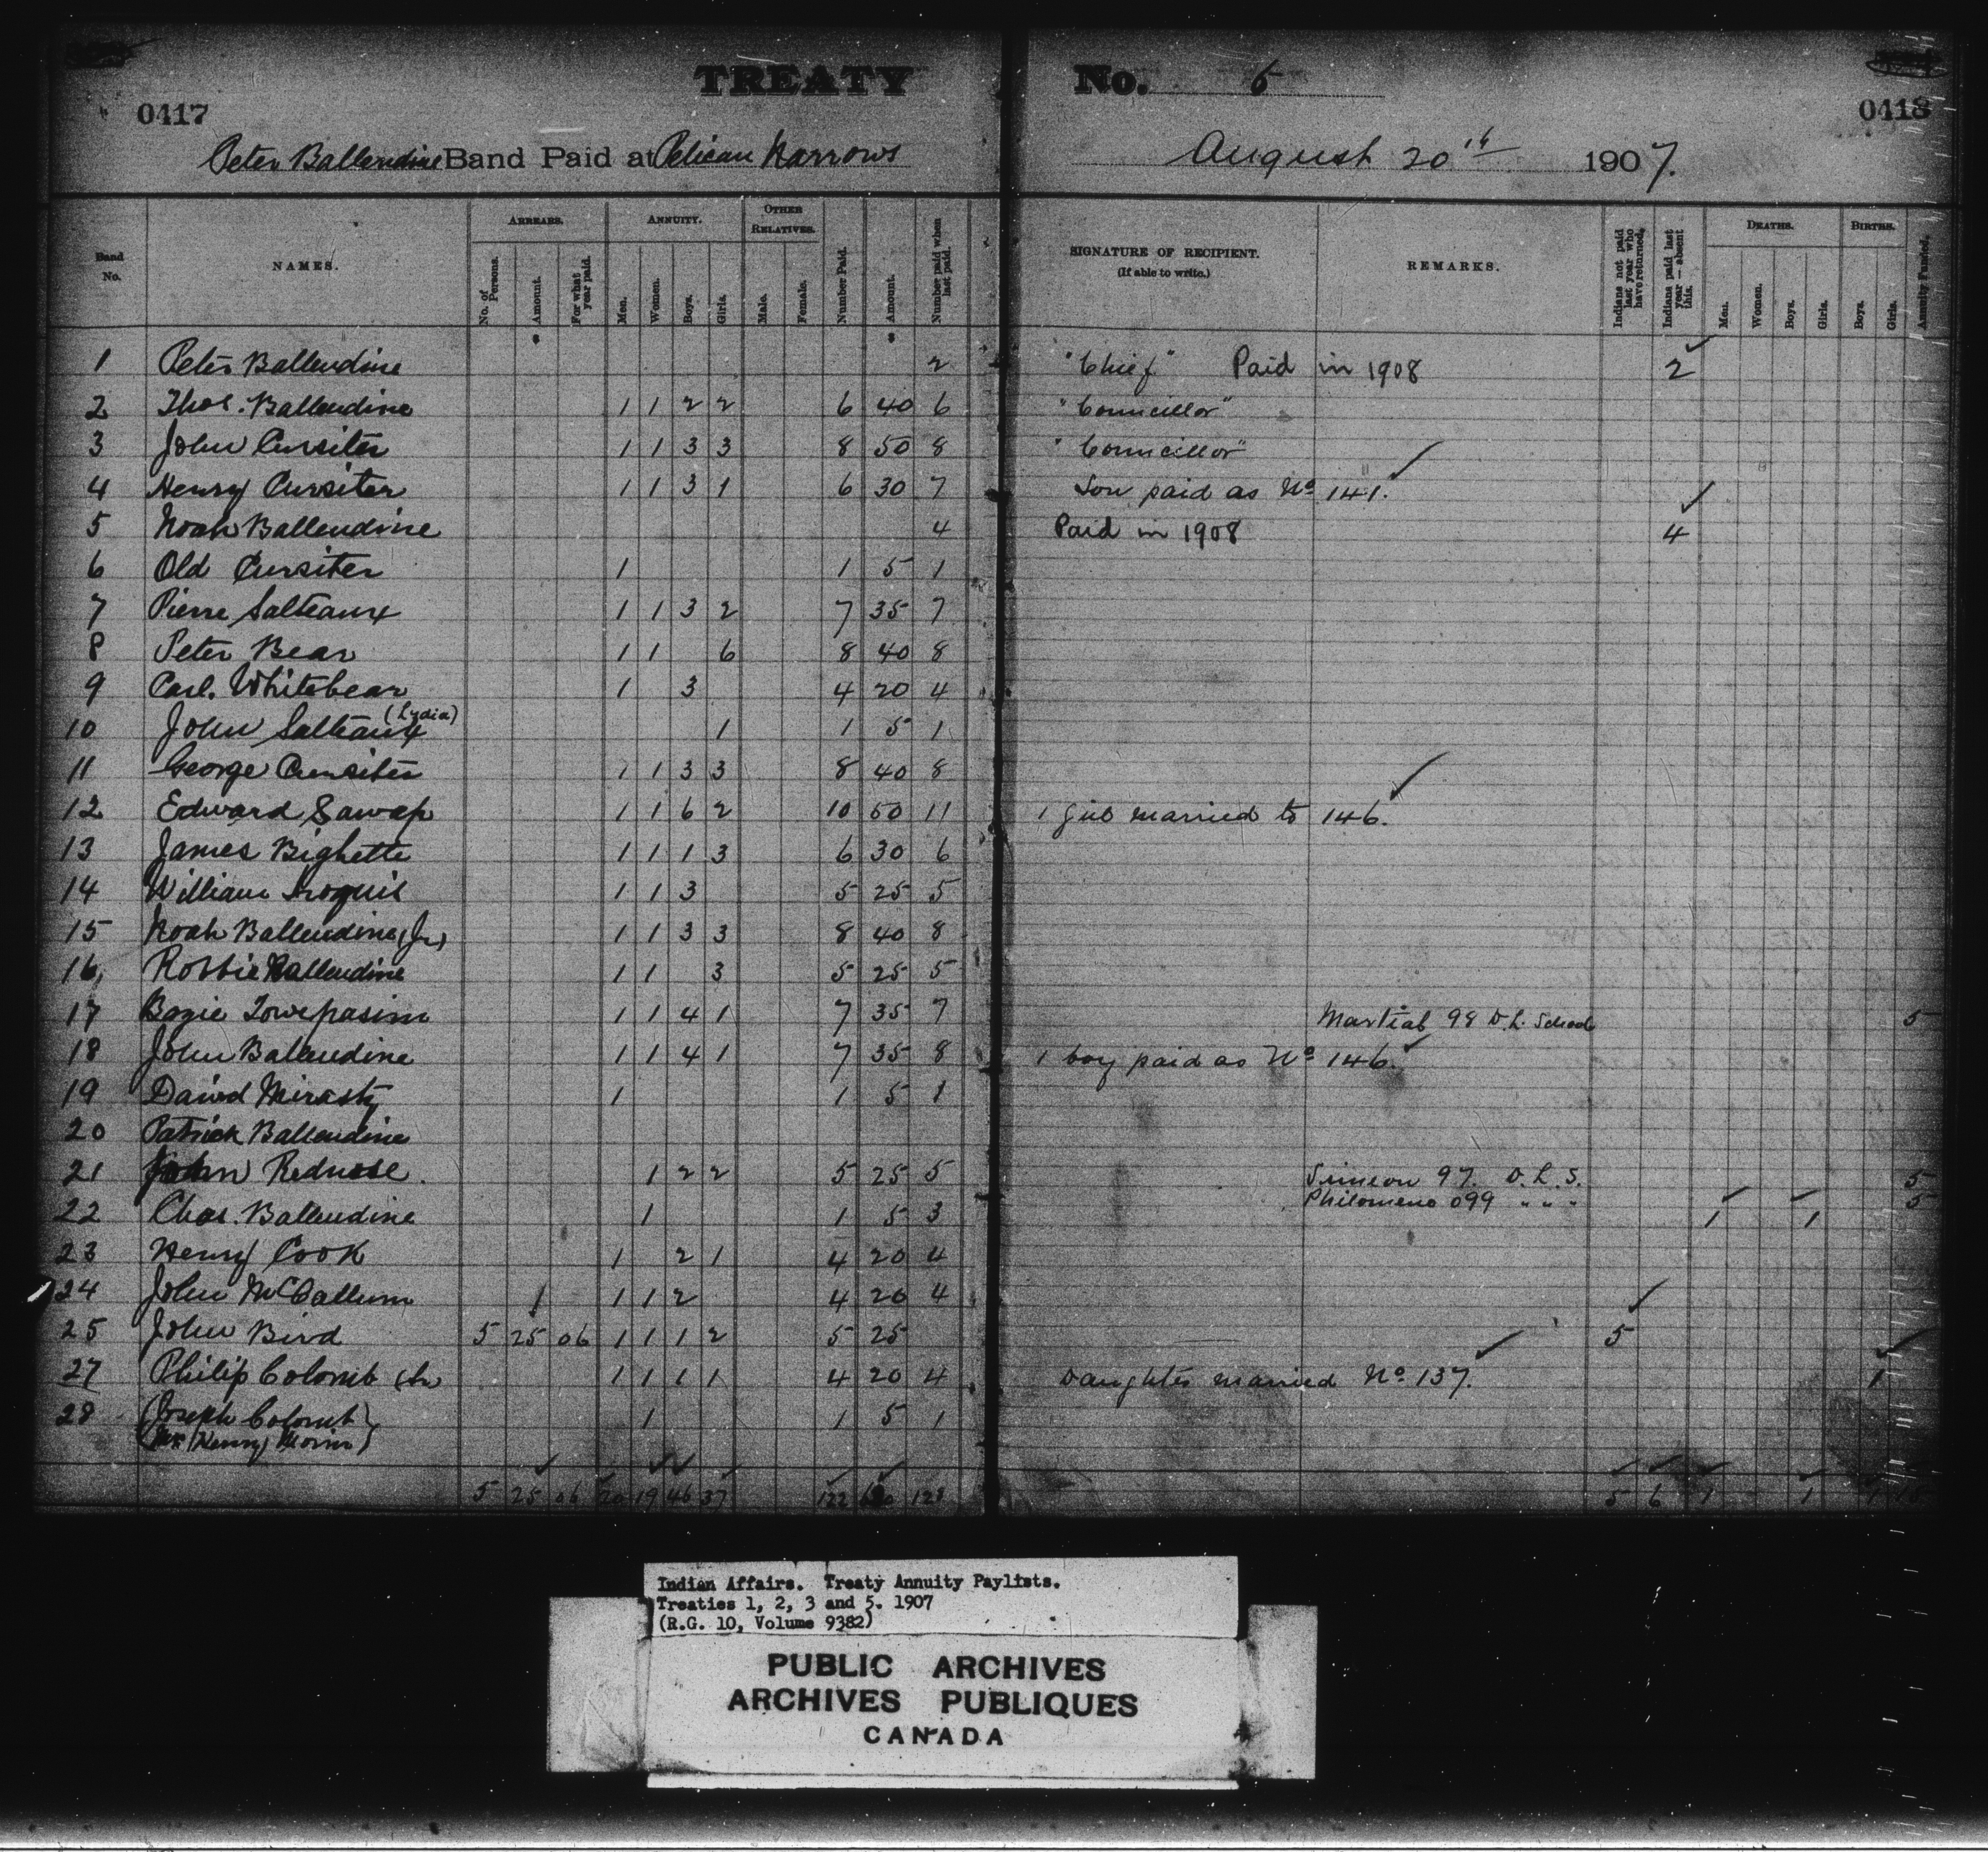 TREATY No. 5
0417
0418
Peter Ballendine Band Paid at Pelican Narrows August 20th 1907.
Band No.
NAMES.
ARREARS.
No. of Persons.
Amount.
For what year paid.
ANNUITY.
Men.
Women.
Boys.
Girls.
OTHER RELATIVES.
Male.
Female.
Number Paid.
Amount.
Number paid when last paid.
SIGNATURE OF RECIPIENT.
(If able to write.)
REMARKS.
Indians not paid last year who have returned.
Indians paid last year — absent this.
DEATHS.
Men.
Women.
Boys.
Girls.
BIRTHS.
Boys.
Girls.
Annuity Funded.
1 Peter Ballendine 2 "Chief" Paid in 1908 2
2 Thos. Ballendine 1 1 2 2 6 40 6 "Councillor"
3 John Cursiter 1 1 3 3 8 50 8 "Councillor"
4 Henry Cursiter 1 1 3 1 6 30 7 Son paid as No 141.
5 Noah Ballendine 4 Paid in 1908 4
6 Old Cursiter 1 1 5 1
7 Pierre Salteaux 1 1 3 2 7 35 7
8 Peter Bear 1 1 6 8 40 8
9 Carl. Whitebear 1 3 4 20 4
10 John Salteaux (Lydia) 1 1 5 1
11 George Cursiter 1 1 3 3 8 40 8
12 Edward Sawap 1 1 6 2 10 50 11 1 girl married to 146.
13 James Bighette 1 1 1 3 6 30 6
14 William Iroquis 1 1 3 5 25 5
15 Noah Ballendine (Jr) 1 1 3 3 8 40 8
16 Robbie Ballendine 1 1 3 5 25 5
17 Bazie 1 1 4 1 7 35 7 Martial 98 D.L. School 5
18 John Ballendine 1 1 4 1 7 35 8 1 boy paid as No 146.
19 David Mirasty 1 1 5 1
20 Patrick Ballendine
21 John Rednose 1 2 2 5 25 5 Simeon 97. D.L.S. 5
Philomene 099 " " " 5
22 Chas. Ballendine 1 1 5 3 1 1
23 Henry Cook 1 2 1 4 20 4
24 John McCallum 1 1 2 4 20 4
25 John Bird 5 25 06 1 1 1 2 5 25 5
27 Philip Colomb Sr 1 1 1 1 4 20 4 Daughter married No 137. 1
28 (Joseph Colomb) 1 1 5 1
(Henry Morin)
5 25 06 20 19 46 37 122 128 5 6 1 1 1 15
Indian Affairs. Treaty Annuity Paylists.
Treaties 1, 2, 3 and 5. 1907
(R.G. 10, Volume 9382)
PUBLIC ARCHIVES
ARCHIVES PUBLIQUES
CANADA